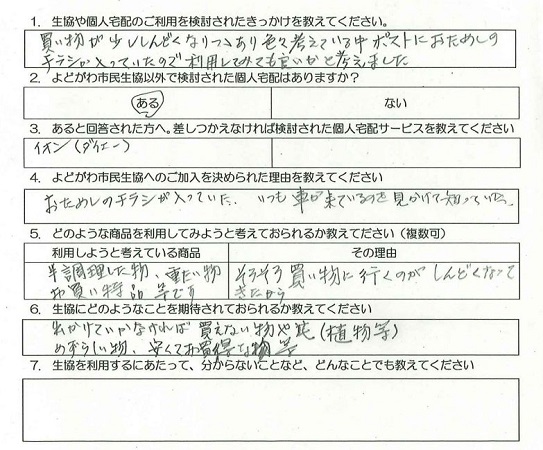 1. 生協や個人宅配のご利用を検討されたきっかけを教えてください。
買い物が少ししんどくなりつつあり色々考えている中ポストにおためしの
チラシが入っていたので利用してみても良いかと考えました
2. よどがわ市民生協以外で検討された個人宅配はありますか?
ある ない
3. あると回答された方へ。差しつかえなければ検討された個人宅配サービスを教えてください
イオン(ダイエー)
4. よどがわ市民生協へのご加入を決められた理由を教えてください
おためしのチラシが入っていた、いつも車が来ているのを見かけて知っていた。
5. どのような商品を利用してみようと考えておられるか教えてださい(複数可)
利用しようと考えている商品 その理由
半調理した物、重たい物 そろそろ買い物に行くのがしんどくなって
お買い特品等です きたから
6. 生協にどのようなことを期待されておられるか教えてください
出かけていかなければ買えない物や(植物等)
めずらしい物、安くてお買得な物等
7. 生協を利用するにあたって、分からないことなど、どんなことでも教えてください